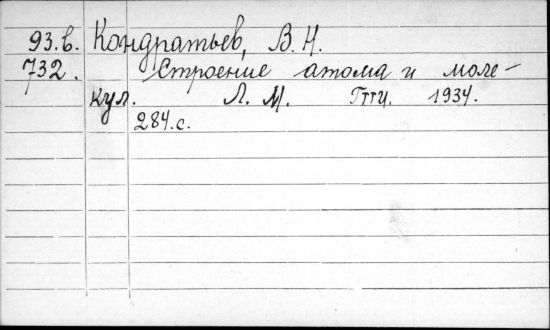 93.в. Кондратьев, В.Н.
732. Строение атома и моле-
кул. Л. М. Гтти. 1934.
284.с.